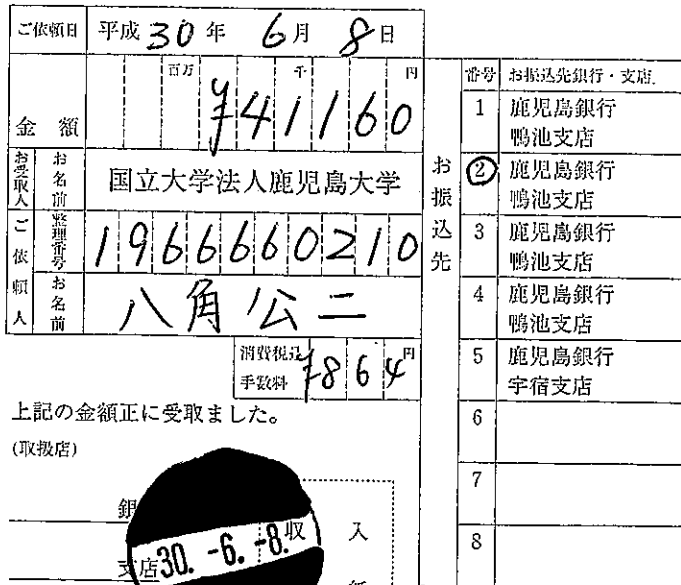 ご依頼日 平成30年 6月 8日
金額 百万 千 円
¥41160
お受取人 お名前 国立大学法人鹿児島大学
ご依頼人 整理番号 1966660210
お名前 八角公二
消費税込手数料 ¥864円
上記の金額正に受取ました。
(取扱店)
銀
支店
30.-6.-8.
収入
お振込先
番号 お振込先銀行・支店
1 鹿児島銀行
鴨池支店
2 鹿児島銀行
鴨池支店
3 鹿児島銀行
鴨池支店
4 鹿児島銀行
鴨池支店
5 鹿児島銀行
宇宿支店
6
7
8